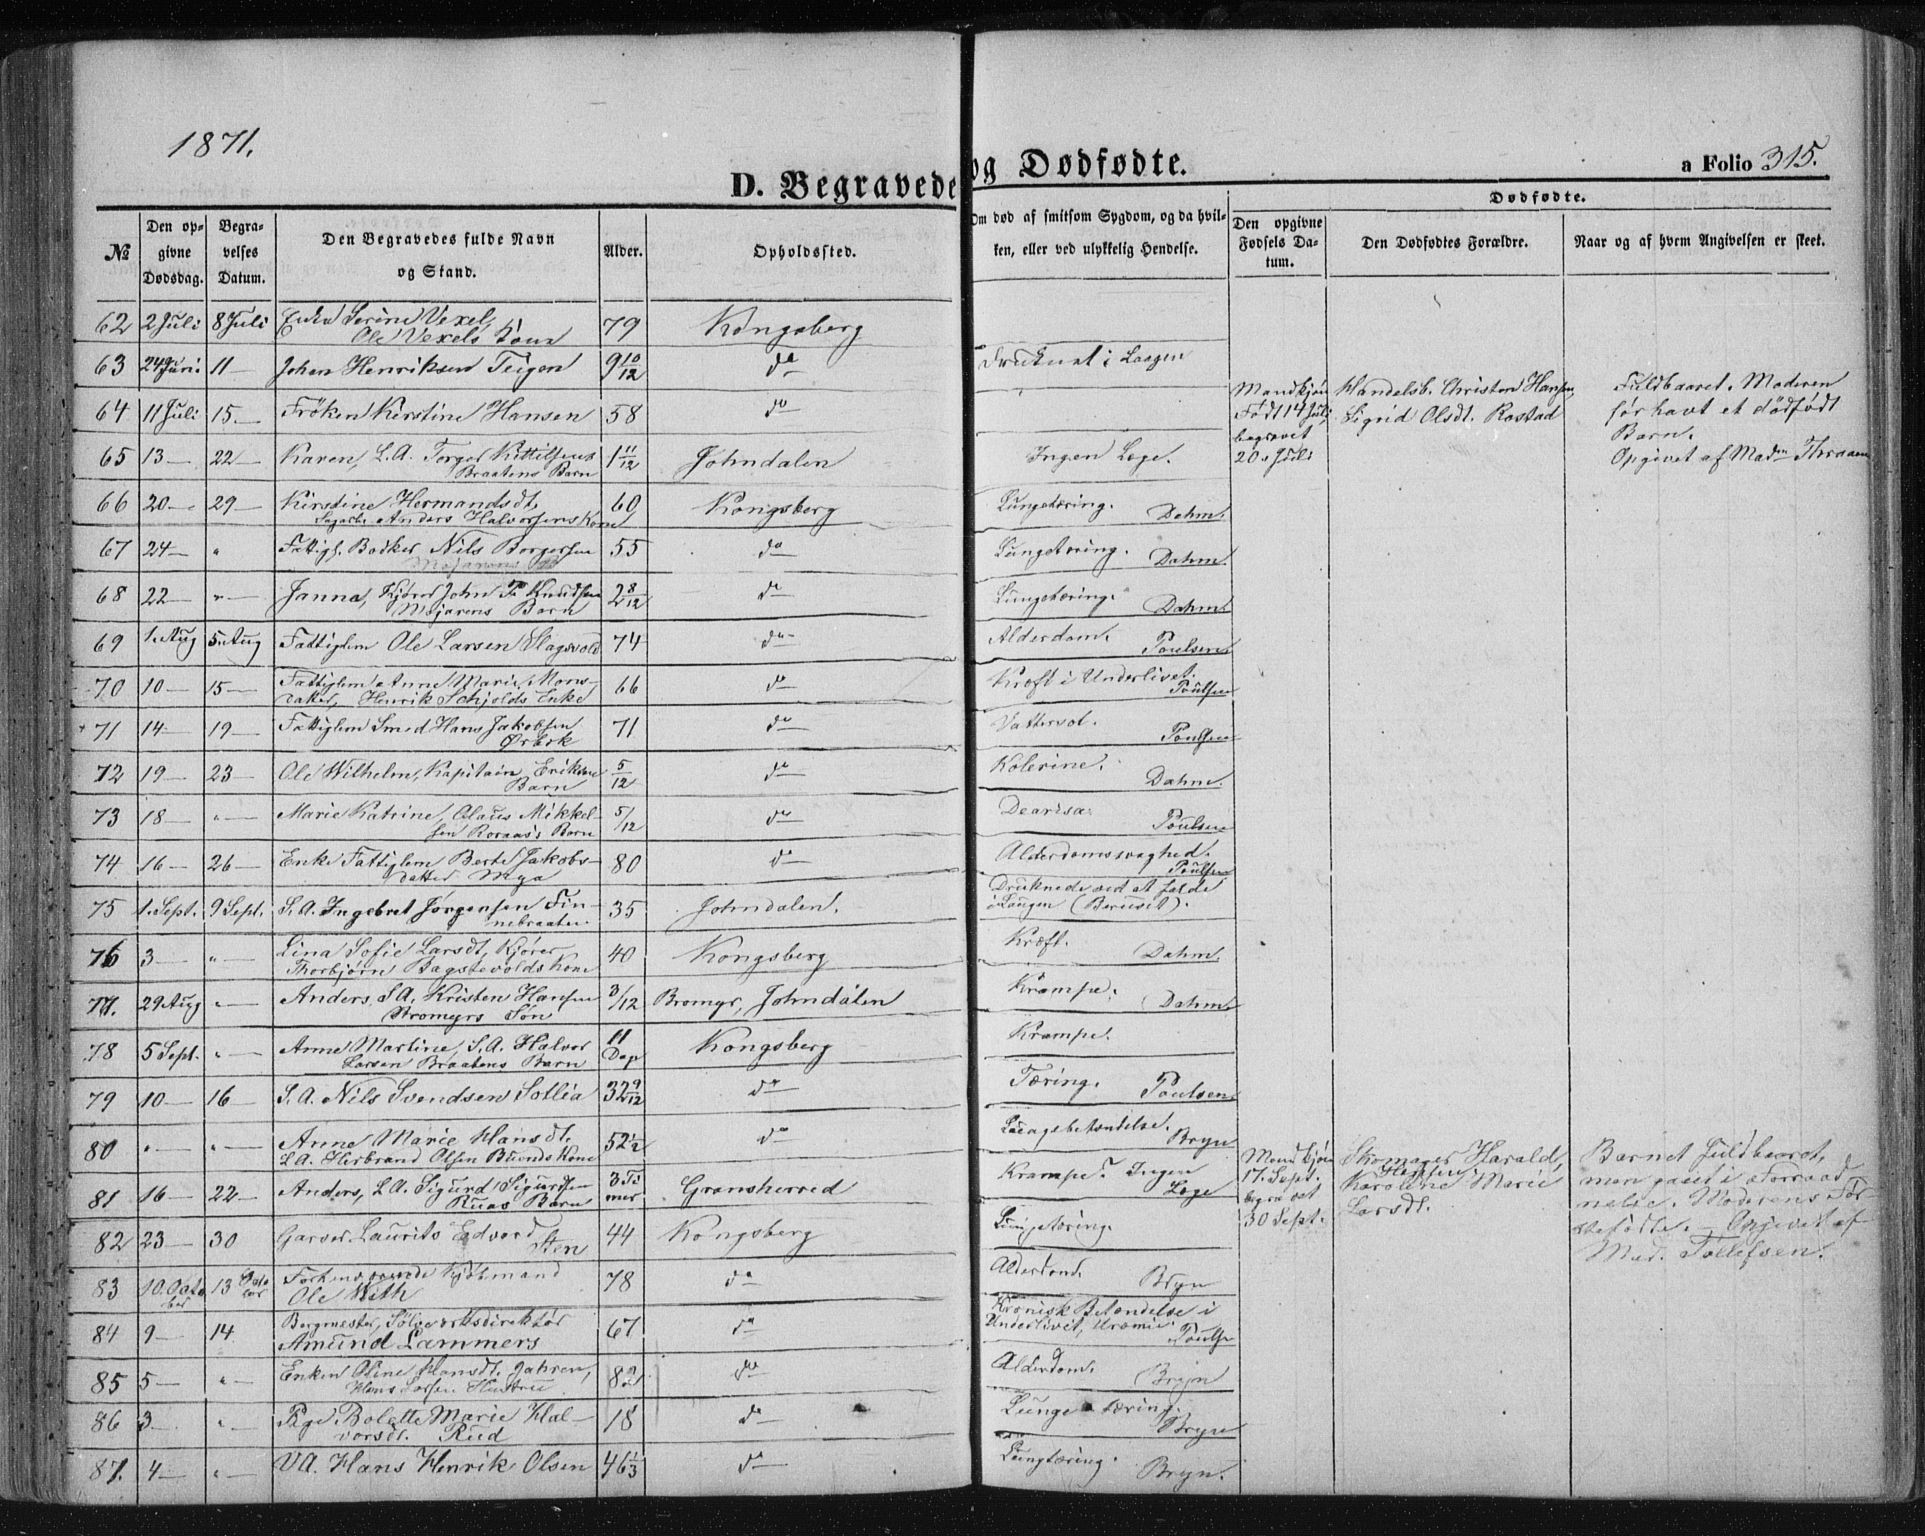 1871.
D. Begravede og Dødfødte.
a Folio 315.
№
Den opgivne Dødsdag.
Begravelses Datum.
Den Begravedes fulde Navn og Stand.
Alder.
Opholdssted.
Om død af smitsom Sygdom, og da hvilken, eller ved ulykkelig Hendelse.
Dødfødte.
Den opgivne Fødsels Datum.
Den Dødfødtes Forældre.
Naar og af hvem Angivelsen er skeet.
62 2 Juli 8 Juli Enken Serine Vexel, 79 Kongsberg
Ole Vexels Kone
63 24 Juni 11 — Johan Henriksen Teigen 9 10/12 do Druknet i Laagen
64 11 Juli 15 — Frøken Kirstine Hansen 58 do
Mandkjøn Født 14 Juli, begravet 20. Juli
Handelsb. Christen Hansen, Sigrid Olsdt. Rostad
Fuldbaaret. Moderen før havt et dødfødt Barn.
Opgivet af Madm
65 13 — 22 — Karen, S.A. Torger Kittilsens 1 11/12 Johndalen Ingen Læge.
Braatens Barn
66 20 — 29 — Kirstine Hermandsdt. 60 Kongsberg Lungetæring. Dahm.
Anders Halvorsens Kone
67 24 — " Fattigl. Bødker Nils Borgersen 55 do Lungetæring. Dahm.
68 22 — " — Janna, Kjører John P. Knudsen 2 8/12 do Lungetæring. Dahm.
Mojarens Barn
69 1. Aug 5. Aug Fattiglem Ole Larsen Slagsvold 74 do Alderdom. Poulsen
70 10 — 15 — Fattiglem Anne Marie Mons- 66 do Kræft i Underlivet. Poulsen
datter, Henrik Schjolds Enke
71 14 — 19 — Fattiglem Smed Hans Jakobsen 71 do Vattersot. Poulsen
Ørbek
72 19 — 23 — Ole Wilhelm, Kapitain Eriksens 5/12 do Kolerine. Dahm.
Barn
73 18 — " — Marie Katrine, Olaus Mikkel- 5/12 do Dearisa. Poulsen
sen Roraas's Barn
74 16 — 26 — Enke Fattiglem Berte Jakobs- 80 do Alderdomssvaghed. Poulsen
datter Mya
75 1. Sept. 9 Sept. S.A. Ingebret Jørgensen Fin- 35 Johndalen. Druknede ved at falde
nebraaten i Laagen (Beruset).
76 3 — " — Lina Sofie Larsdt, Kjører 40 Kongsberg Kræft. Dahm.
Thorbjørn Bagstevolds Kone
77. 29 Aug " — Anders, S.A. Kristen Hansen 3/12 Bromyr, Johndalen Krampe. Dahm.
Bromyrs Søn
78 5 Sept. " — Anne Martine, S.A. Halvor 11 Dage Kongsberg Krampe.
Larsen Braatens Barn
79 10 — 16 — S.A. Nils Svendsen Sotlia 32 9/12 do Tæring. Poulsen.
80 " — " — Anne Marie Hansdt. 52 1/2 do Bryn
S.A. Herbrand Olsen Buends Kone
81 16 — 22 — Anders, S.A. Sigurd Sigurdsen 3 Timer Gransherred Krampe? Ingen Læge
Ruas Barn
Mandkjøn 17. Sept. begravet 30 Sept.
Skomager Harald, Karoline Marie Larsdt.
Barnet fuldbaaret,
men gaaet i Forraadnelse. Moderens Førstefødte. — Opgivet af
Mad. Tollefsen.
82 23 — 30 Garver Laurits Edvard 44 Kongsberg Lungetæring.
Sten
83 10. October 13 October Forhenværende Kjøbmand 78 do Alderdom. Bryn
Ole Weth
84 9 — 14 Bergmester, Sølvverksdirektør 67 do Kronisk Betændelse i
Amund Lammers Underlivet, Uræmie. Poulsen
85 5 — " — Enken Oline Hansdt. Jahren, do Alderdom. Bryn
Hans Larsen Hustru
86 3 — " — Pige Bolette Marie Hal- 18 do Lungetæring. Bryn
vorsdt. Rud
87. 4 — " — V.A. Hans Henrik Olsen 46 1/3 do Lungtæring. Bryn.